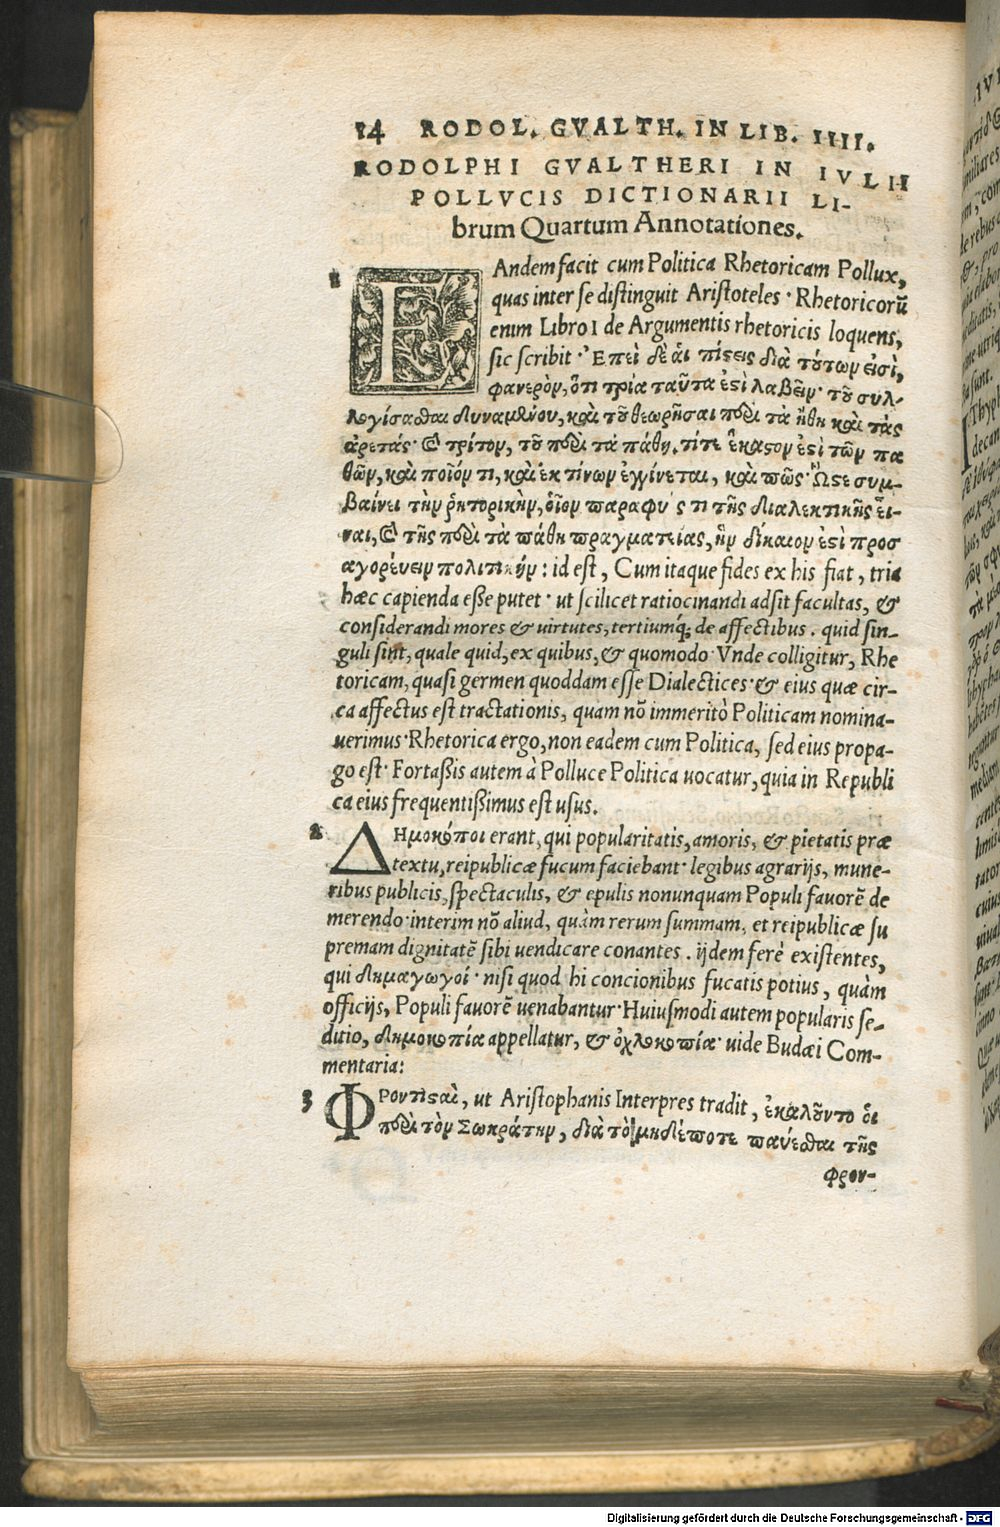 14 RODOL. GVALTH. IN LIB. IIII.
RODOLPHI GVALTHERI IN IVLII
POLLVCIS DICTIONARII LI-
brum Quartum Annotationes.
1 EAndem facit cum Politica Rhetoricam Pollux,
quas inter se distinguit Aristoteles · Rhetoricorū
enim Libro I de Argumentis rhetoricis loquens,
sic scribit · Ἐπεὶ δὲ ἁι πίϛεις διὰ τούτων εἰσὶ,
φανερὸν, ὅτι τρία ταῦτα ἐϛὶ λαβεῖν· τοῦ συλ-
λογίσαϑαι δυναμένου, καὶ τοῦ θεωρῆσαι περὶ τὰ ἤθη καὶ τὰς
ἀρετάς· καὶ τρίτον, τοῦ περὶ τὰ πάθη. τί τε ἕκαϛον ἐϛὶ τῶν πα
θῶν, καὶ ποῖόν τι, καὶ ἐκ τίνων ἐγγίνεται, καὶ πῶς· Ὥϛε συμ-
βαίνει τὴν ῥητορικὴν, οἷον παραφυ ς τι τῆς διαλεκτικῆς εἶ-
ναι, καὶ τῆς περὶ τὰ πάθη πραγματείας, ἣν δίκαιον ἐϛὶ προσ
αγορέυειν πολιτικήν: id est, Cum itaque fides ex his fiat, tria
hæc capienda esse putet · ut scilicet ratiocinandi adsit facultas, &
considerandi mores & uirtutes, tertiumq́; de affectibus. quid sin-
guli sint, quale quid, ex quibus, & quomodo · Vnde colligitur, Rhe
toricam, quasi germen quoddam esse Dialectices · & eius quæ cir-
ca affectus est tractationis, quam nō immeritò Politicam nomina-
uerimus · Rhetorica ergo, non eadem cum Politica, sed eius propa-
go est · Fortaßis autem à Polluce Politica uocatur, quia in Republi
ca eius frequentißimus est usus.
2 ΔΗμοκόποι erant, qui popularitatis, amoris, & pietatis præ
textu, reipublicæ fucum faciebant · legibus agrarijs, mune-
ribus publicis, spectaculis, & epulis nonunquam Populi fauorē de
merendo · interim nō aliud, quàm rerum summam, et reipublicæ su
premam dignitatē sibi uendicare conantes. ijdem ferè existentes,
qui δημαγωγοί · nisi quod hi concionibus fucatis potius, quàm
officijs, Populi fauorē uenabantur · Huiusmodi autem popularis se-
ditio, δημοκοπία appellatur, & ὀχλοκοπία · uide Budæi Com-
mentaria:
3 ΦΡοντιϛαὶ, ut Aristophanis Interpres tradit, ἐκαλοῦντο ὁι
περὶ τὸν Σωκράτην, διὰ τὸ μηδέποτε παύεϑαι τῆς
φρον-
Digitalisierung gefördert durch die Deutsche Forschungsgemeinschaft - DFG